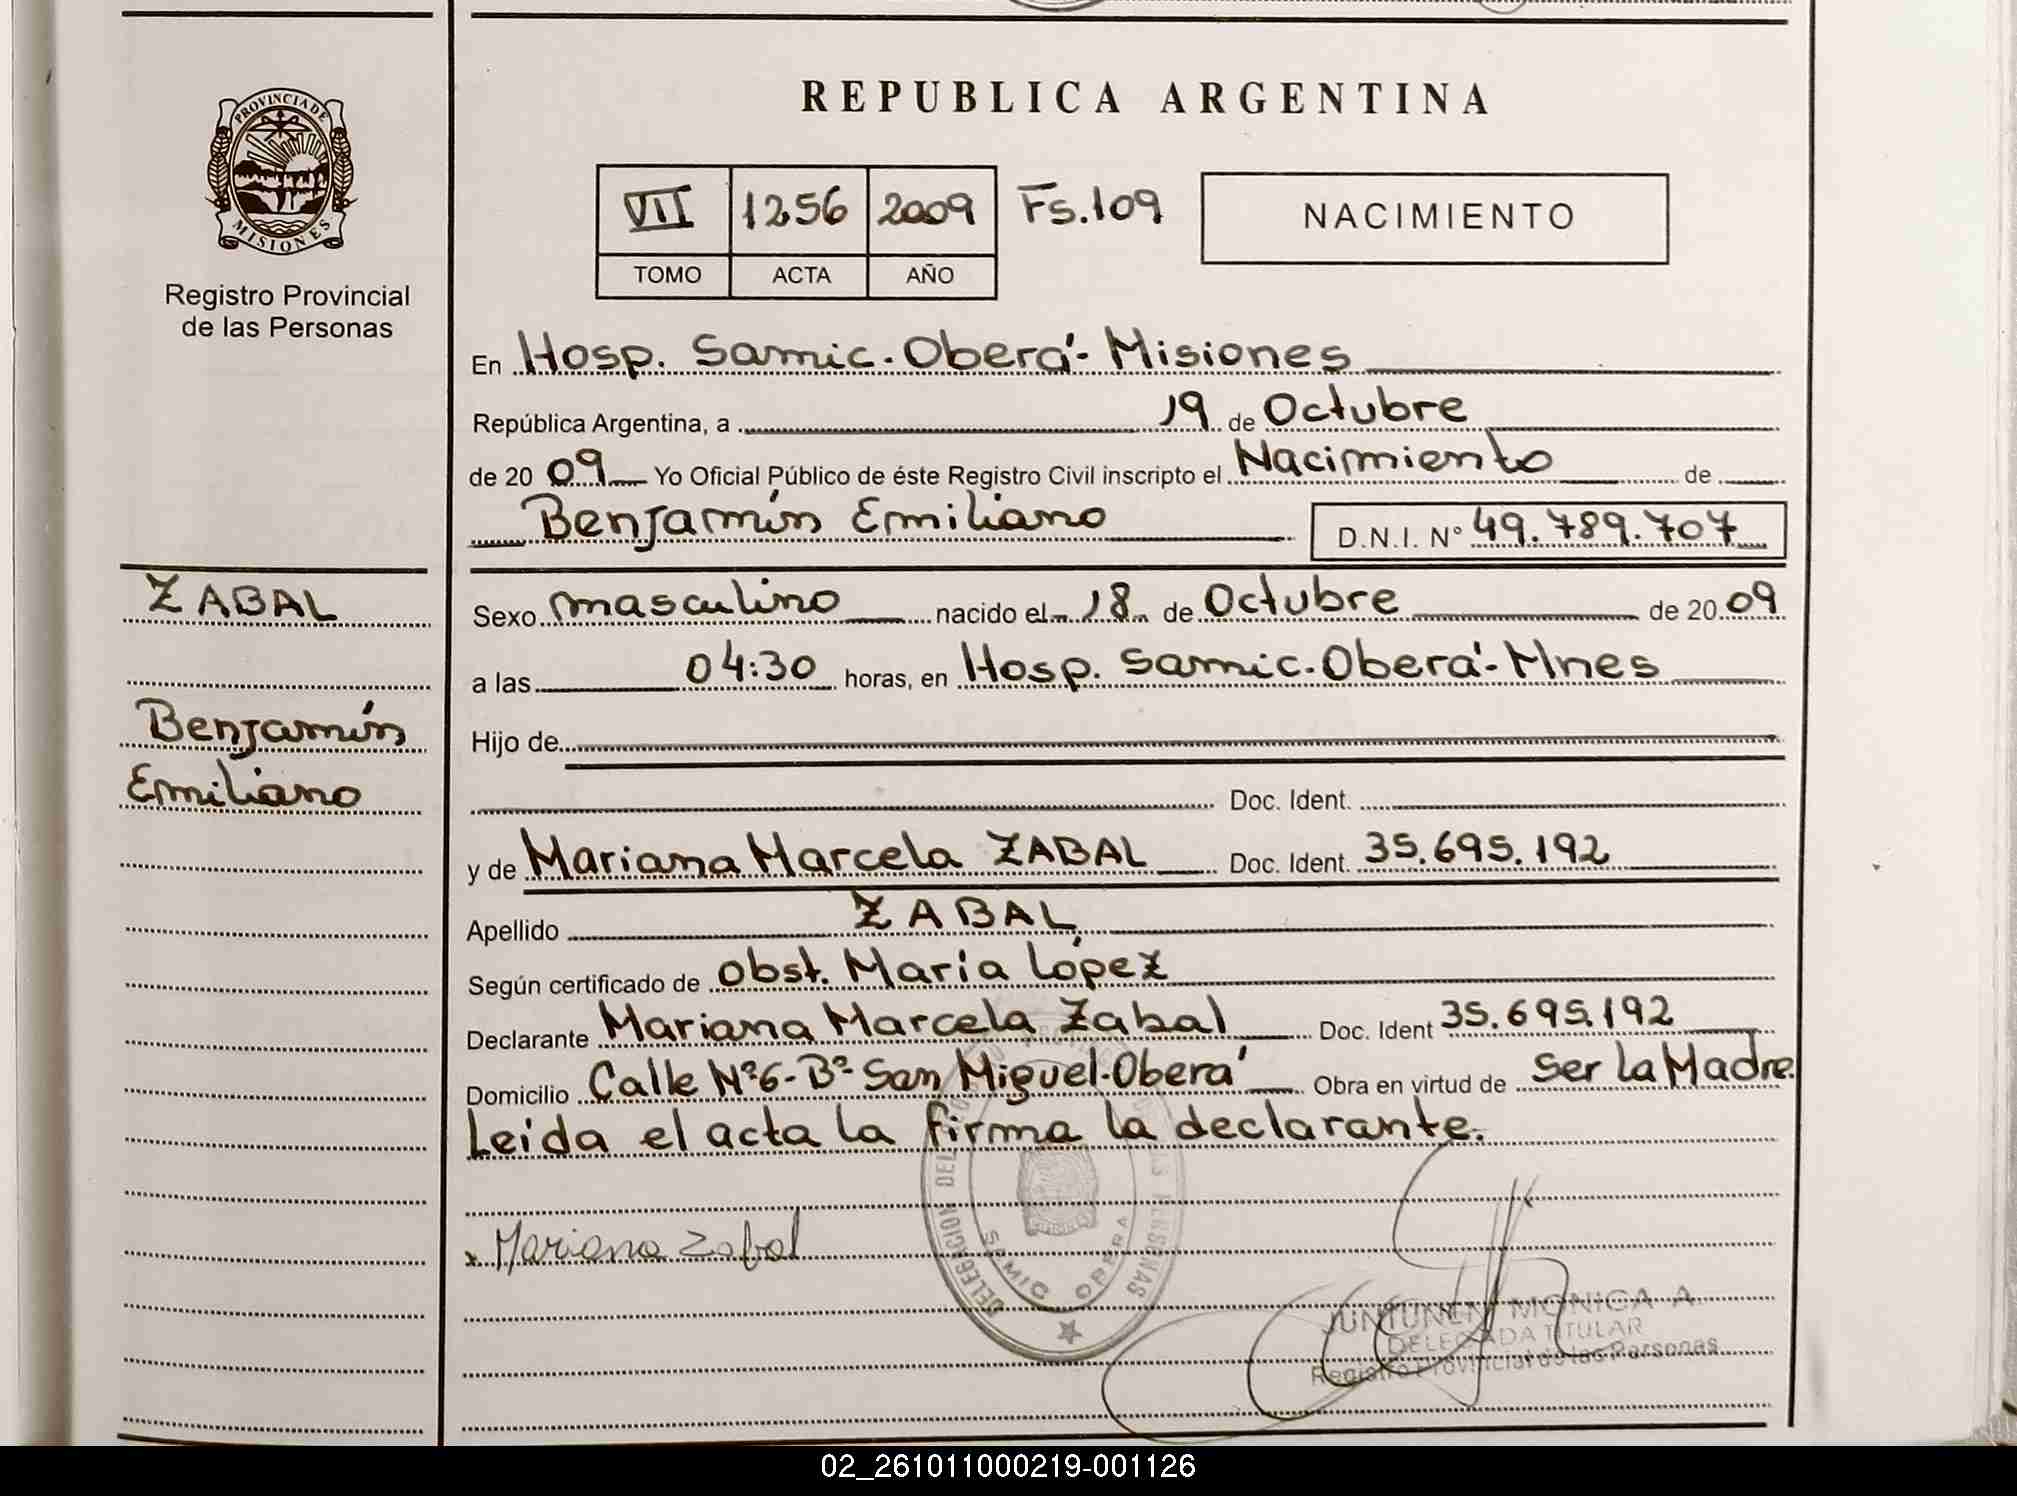 REPUBLICA ARGENTINA
PROVINCIA DE
MISIONES
Registro Provincial
de las Personas
VII 1256 2009 Fs.109
TOMO ACTA AÑO
NACIMIENTO
En Hosp. Samic.Oberá-Misiones
República Argentina, a 19 de Octubre
de 2009 Yo Oficial Público de éste Registro Civil inscripto el Nacimiento de
Benjamín Emiliano D.N.I. N° 49.789.707
ZABAL
Benjamín
Emiliano
Sexo masculino nacido el 18 de Octubre de 2009
a las 04:30 horas, en Hosp. Samic.Oberá-Mnes
Hijo de
Doc. Ident.
y de Mariana Marcela ZABAL Doc. Ident. 35.695.192
Apellido ZABAL
Según certificado de Obst. María López
Declarante Mariana Marcela Zabal Doc. Ident 35.695.192
Domicilio Calle Nº6-Bº San Miguel-Oberá Obra en virtud de ser la Madre.
Leída el acta la firma la declarante.
x Mariana Zabal
DELEGACION DEL PERSONAS
SAMIC OBERA
JUNTUNEN MONICA A.
DELEGADA TITULAR
Registro Provincial de las Personas
02_261011000219-001126